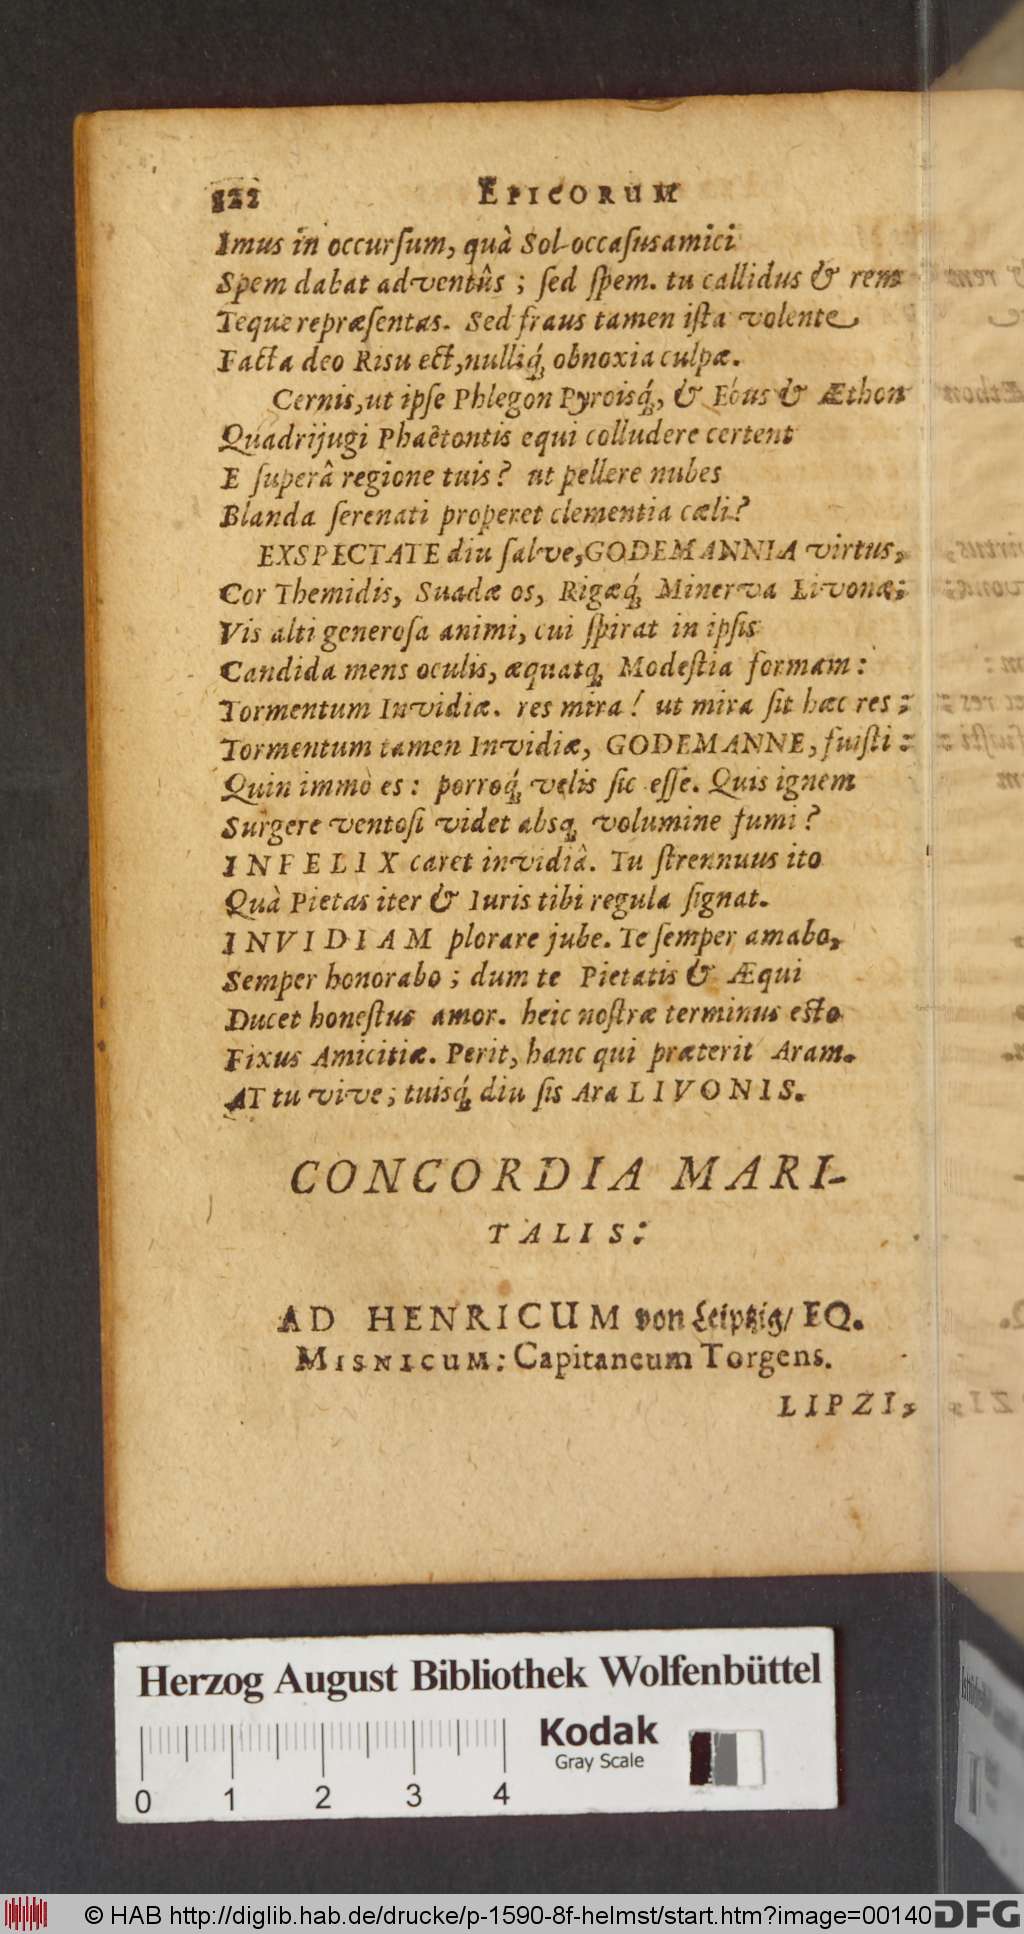 122 EPICORUM
Imus in occursum, quà Sol occasus amici
Spem dabat adventûs ; sed spem. tu callidus & rem
Teque repræsentas. Sed fraus tamen ista volente
Facta deo Risu ect, nulliq́; obnoxia culpæ.
Cernis, ut ipse Phlegon Pyroisq́;, & Eous & Æthon
Quadrijugi Phaëtontis equi colludere certent
E superâ regione tuis ? ut pellere nubes
Blanda serenati properet clementia cæli ?
EXSPECTATE diu salve, GODEMANNIA virtus,
Cor Themidis, Suadæ os, Rigæq́; Minerva Livonæ;
Vis alti generosa animi, cui spirat in ipsis
Candida mens oculis, æquatq; Modestia formam :
Tormentum Invidiæ. res mira ! ut mira sit hæc res ;
Tormentum tamen Invidiæ, GODEMANNE, fuisti :
Quin immò es : porroq́; velis sic esse. Quis ignem
Surgere ventosi videt absq; volumine fumi ?
INFELIX caret invidiâ. Tu strennuus ito
Quà Pietas iter & Iuris tibi regula signat.
INVIDIAM plorare jube. Te semper amabo,
Semper honorabo ; dum te Pietatis & Æqui
Ducet honestus amor. heic nostræ terminus esto
Fixus Amicitiæ. Perit, hanc qui præterit Aram.
AT tu vive ; tuisq́; diu sis Ara LIVONIS.
CONCORDIA MARI-
TALIS:
AD HENRICUM von Leipzig/ EQ.
MISNICUM: Capitaneum Torgens.
LIPZI,
Herzog August Bibliothek Wolfenbüttel
Kodak
Gray Scale
0 1 2 3 4
© HAB http://diglib.hab.de/drucke/p-1590-8f-helmst/start.htm?image=00140
DFG